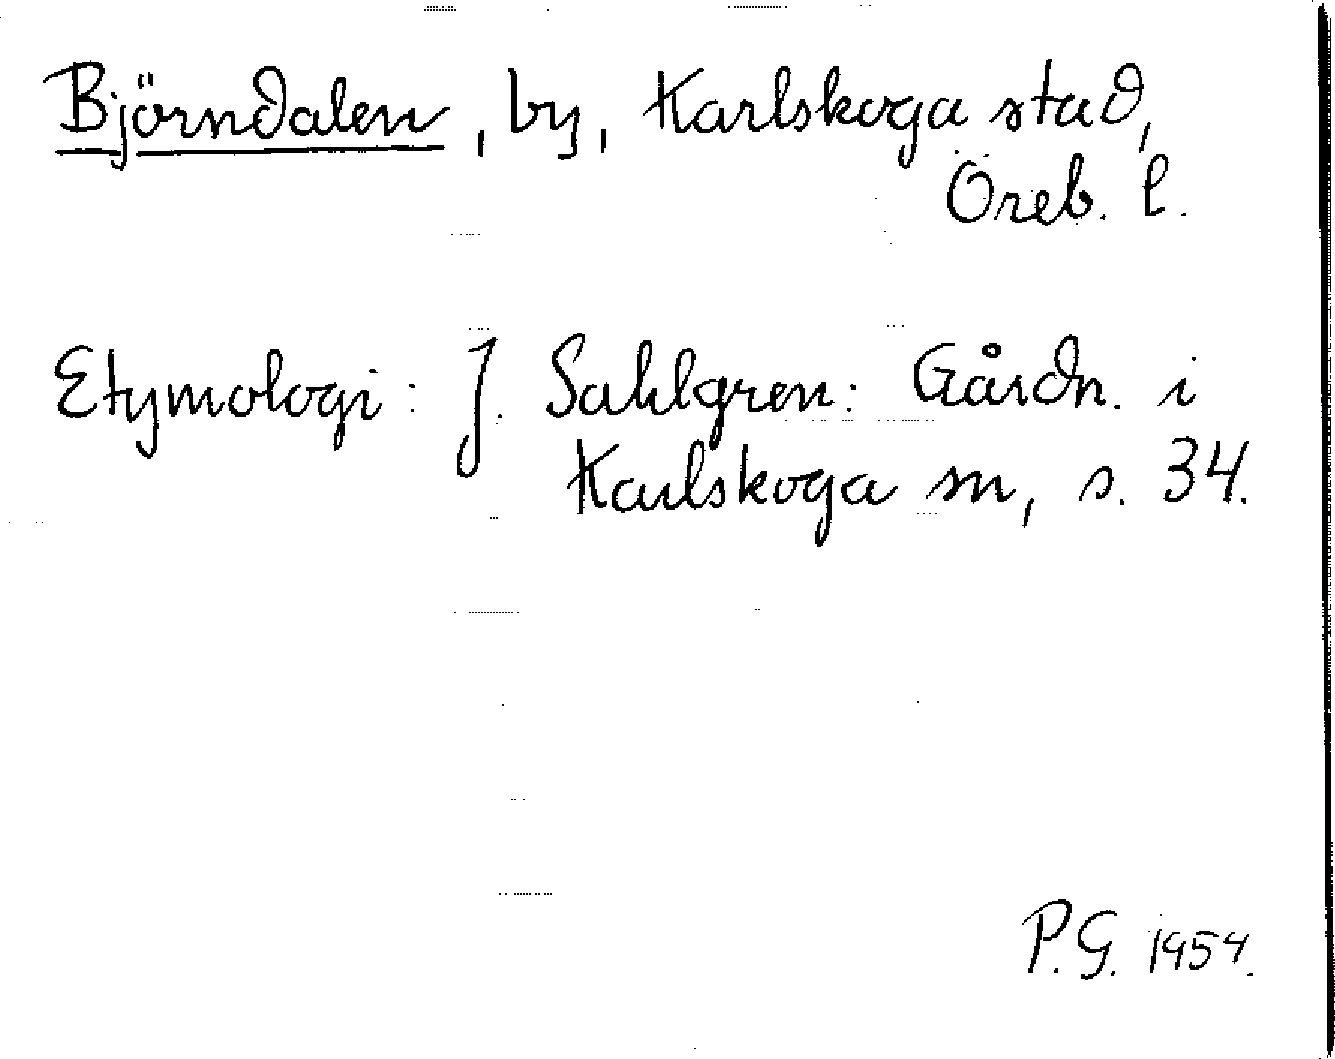 Björndalen, by, Karlskoga stad,
Öreb. l.
Etymologi: J. Sahlgren: Gårdn. i
Karlskoga sn, s. 34.
P.G. 1954.